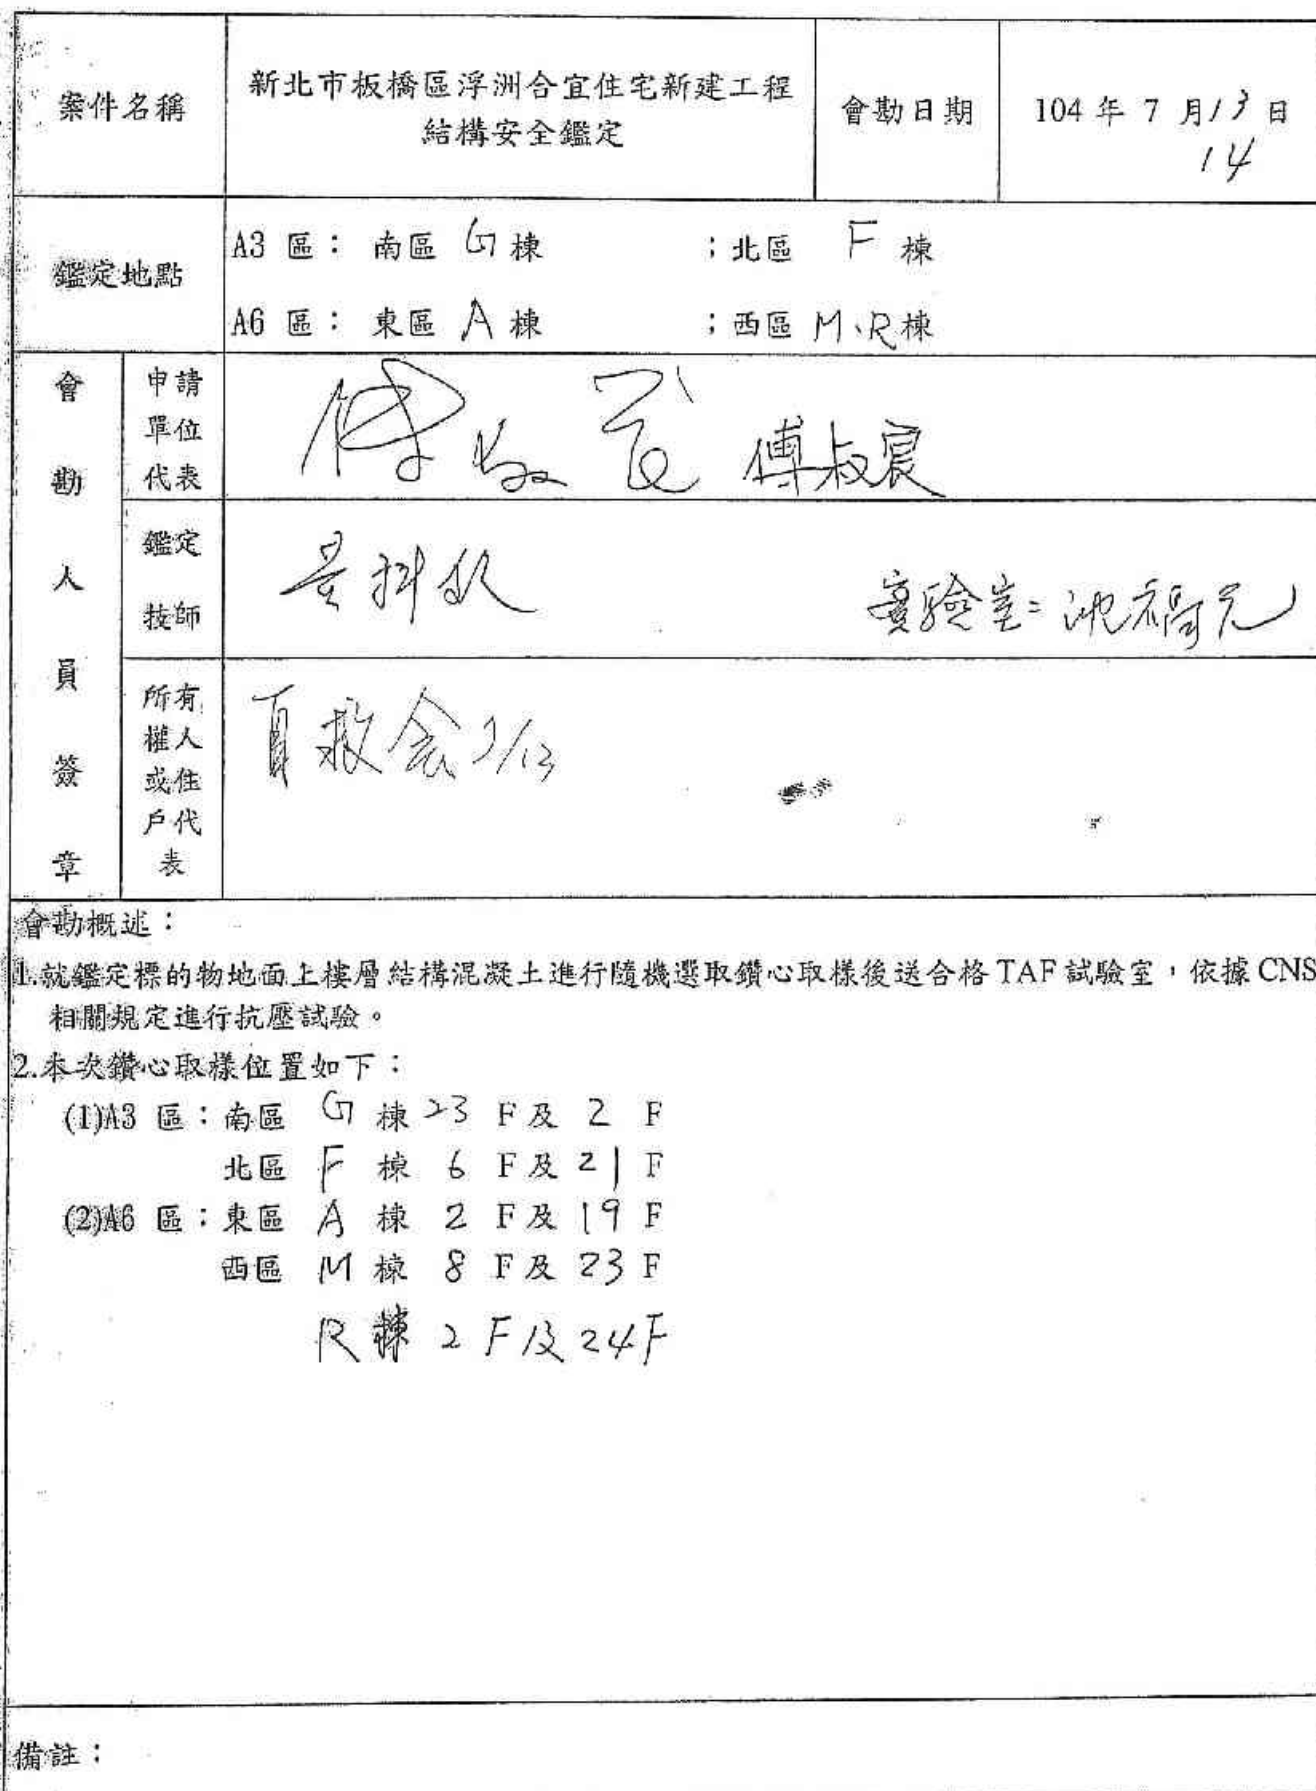 案件名稱
新北市板橋區浮洲合宜住宅新建工程
結構安全鑑定
會勘日期
104 年 7 月 13 日
14
鑑定地點
A3 區： 南區 G 棟 ；北區 F 棟
A6 區： 東區 A 棟 ；西區 M、R 棟
會勘人員簽章
申請
單位
代表
傅叔宸
鑑定
技師
實驗室：沈福元
所有
權人
或住
戶代
表
自救會 7/13
會勘概述：
1.就鑑定標的物地面上樓層結構混凝土進行隨機選取鑽心取樣後送合格 TAF 試驗室，依據 CNS
相關規定進行抗壓試驗。
2.本次鑽心取樣位置如下：
(1)A3 區：南區 G 棟 23 F 及 2 F
北區 F 棟 6 F 及 21 F
(2)A6 區：東區 A 棟 2 F 及 19 F
西區 M 棟 8 F 及 23 F
R 棟 2 F 及 24 F
備註：